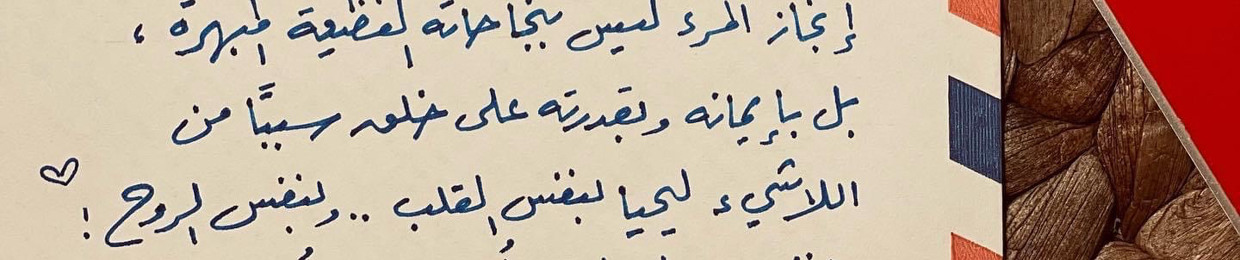 إنجاز المرء ليس بنجاحاته الفظيعة المبهرة ،
بل بإيمانه وبقدرته على خلق سببًا من
اللاشيء ليحيا بنفس القلب .. وبنفس الروح !